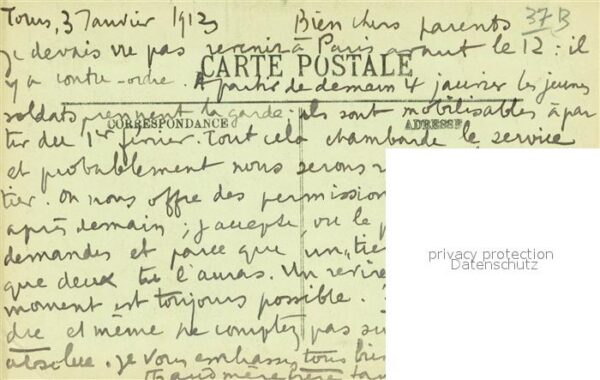 Tours, 3 Janvier 1913 Bien chers parents 37B
je devais ne pas revenir à Paris avant le 12 : il
y a contre-ordre. A partir de demain 4 janvier les jeunes
CARTE POSTALE
soldats prennent la garde. ils sont mobilisables à par
CORRESPONDANCE ADRESSE
tir du 1er février. Tout cela chambarde le service
et probablement nous serons
tier. On nous offre des permission
après demain ; j'accepte, vu le
demandes et parce que un "tie
que deux tu l'auras. Un revire
moment est toujours possible.
dre et même ne comptez pas su
absolue. je vous embrasse tous bie
grand mère
privacy protection
Datenschutz